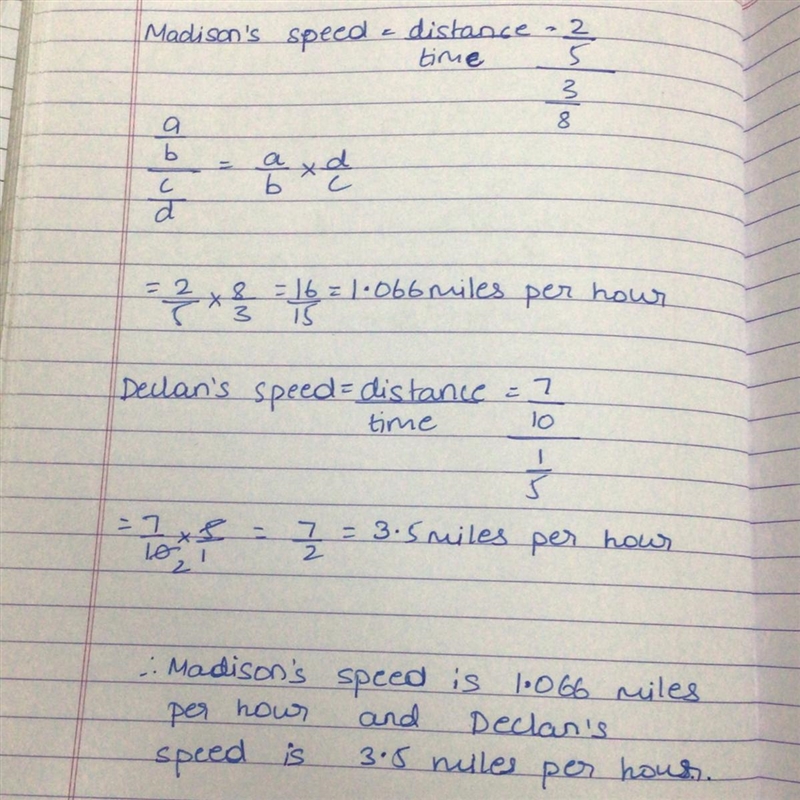 Madison's speed = distance = 2
time 5
3
8
a
b = a × d
c b c
d
= 2 × 8 = 16 = 1.066 miles per hour
5 3 15
Declan's speed = distance = 7
time 10
1
5
= 7 × 5 = 7 = 3.5 miles per hour
10 2 1 2
∴ Madison's speed is 1.066 miles
per hour and Declan's
speed is 3.5 miles per hour.